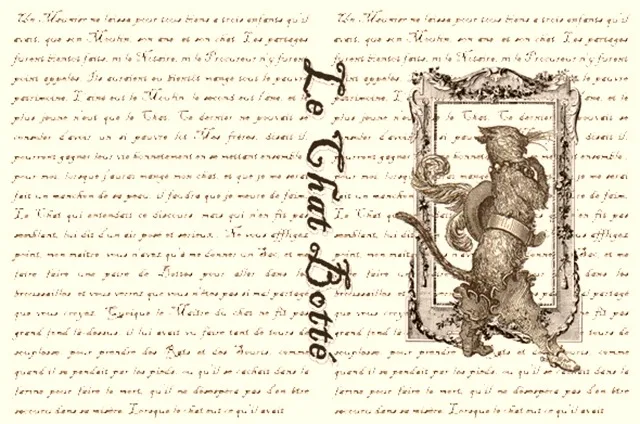 Un Meunier ne laissa pour tous biens à trois enfants qu'il
avait, que son Moulin, son âne, et son chat. Les partages
furent bientôt faits, ni le Notaire, ni le Procureur n'y furent
point appelés. Ils auraient eu bientôt mangé tout le pauvre
patrimoine. L'aîné eut le Moulin, le second eut l'âne, et le
plus jeune n'eut que le Chat. Ce dernier ne pouvait se
consoler d'avoir un si pauvre lot. Mes frères, disait-il,
pourront gagner leur vie honnêtement en se mettant ensemble
pour moi, lorsque j'aurai mangé mon chat, et que je me serai
fait un manchon de sa peau, il faudra que je meure de faim.
Le Chat qui entendait ce discours, mais qui n'en fit pas
semblant, lui dit d'un air posé et sérieux : Ne vous affligez
point, mon maître, vous n'avez qu'à me donner un Sac, et me
faire faire une paire de Bottes pour aller dans les
broussailles, et vous verrez que vous n'êtes pas si mal partagé
que vous croyez. Quoique le Maître du chat ne fît pas
grand fond là-dessus, il lui avait vu faire tant de tours de
souplesse, pour prendre des Rats et des Souris, comme
quand il se pendait par les pieds, ou qu'il se cachait dans la
farine pour faire le mort, qu'il ne désespéra pas d'en être
secouru dans sa misère. Lorsque le chat eut ce qu'il avait
Le Chat Botté
Un Meunier ne laissa pour tous biens à trois enfants qu'il
avait, que son Moulin, son âne, et son chat. Les partages
furent bientôt faits, ni le n'y furent
point appelés. Ils pauvre
patrimoine. L'aîné et le
plus jeune n'eut que le Chat. Ce dernier se
consoler d'avoir disait-il,
pourront gagner ensemble
pour moi, lorsque je me serai
fait un manchon de faim.
Le Chat qui pas
semblant, lui dit affligez
point, mon maître, et me
faire faire une les
broussailles, et vous partagé
que vous croyez. pas
grand fond là-dessus, tours de
souplesse, pour prendre des Rats comme
quand il se pendait par les pieds, ou qu'il se cachait dans la
farine pour faire le mort, qu'il ne désespéra pas d'en être
secouru dans sa misère. Lorsque le chat eut ce qu'il avait